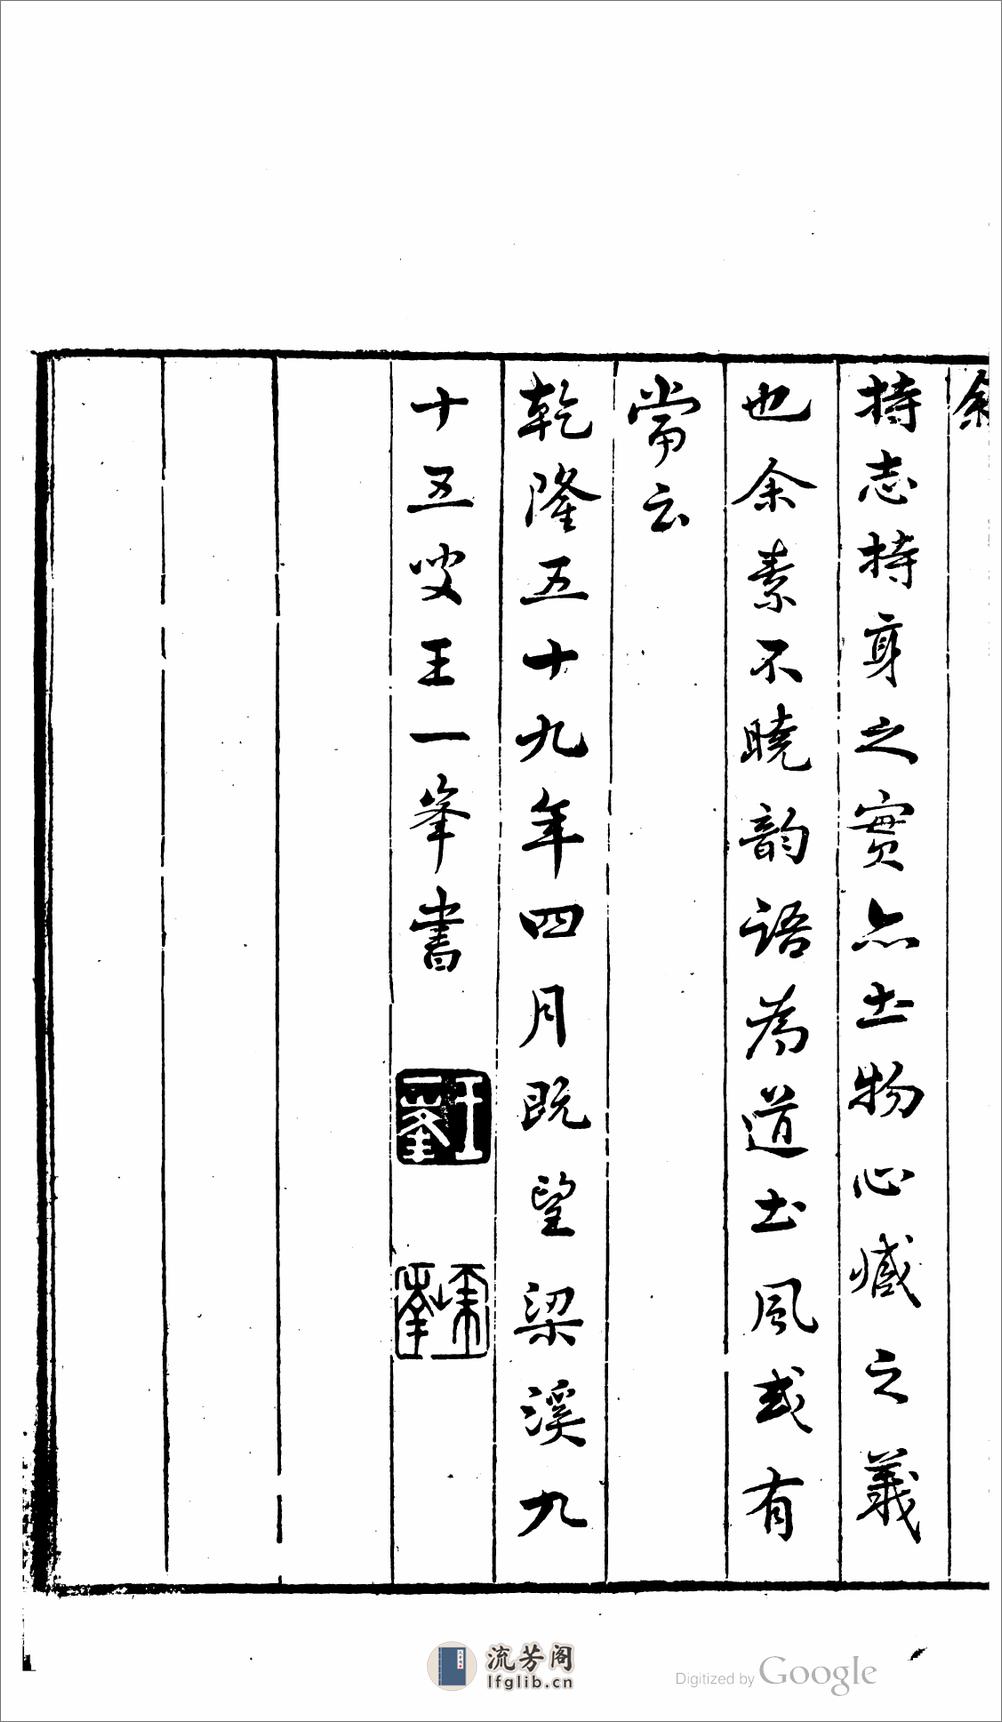 叙
持志持身之實亦土物心臧之義
也余素不曉韵語為道土風或有
當云
乾隆五十九年四月既望梁溪九
十五叟王一峯書
王一峯
流芳阁
lfglib.cn
Digitized by Google